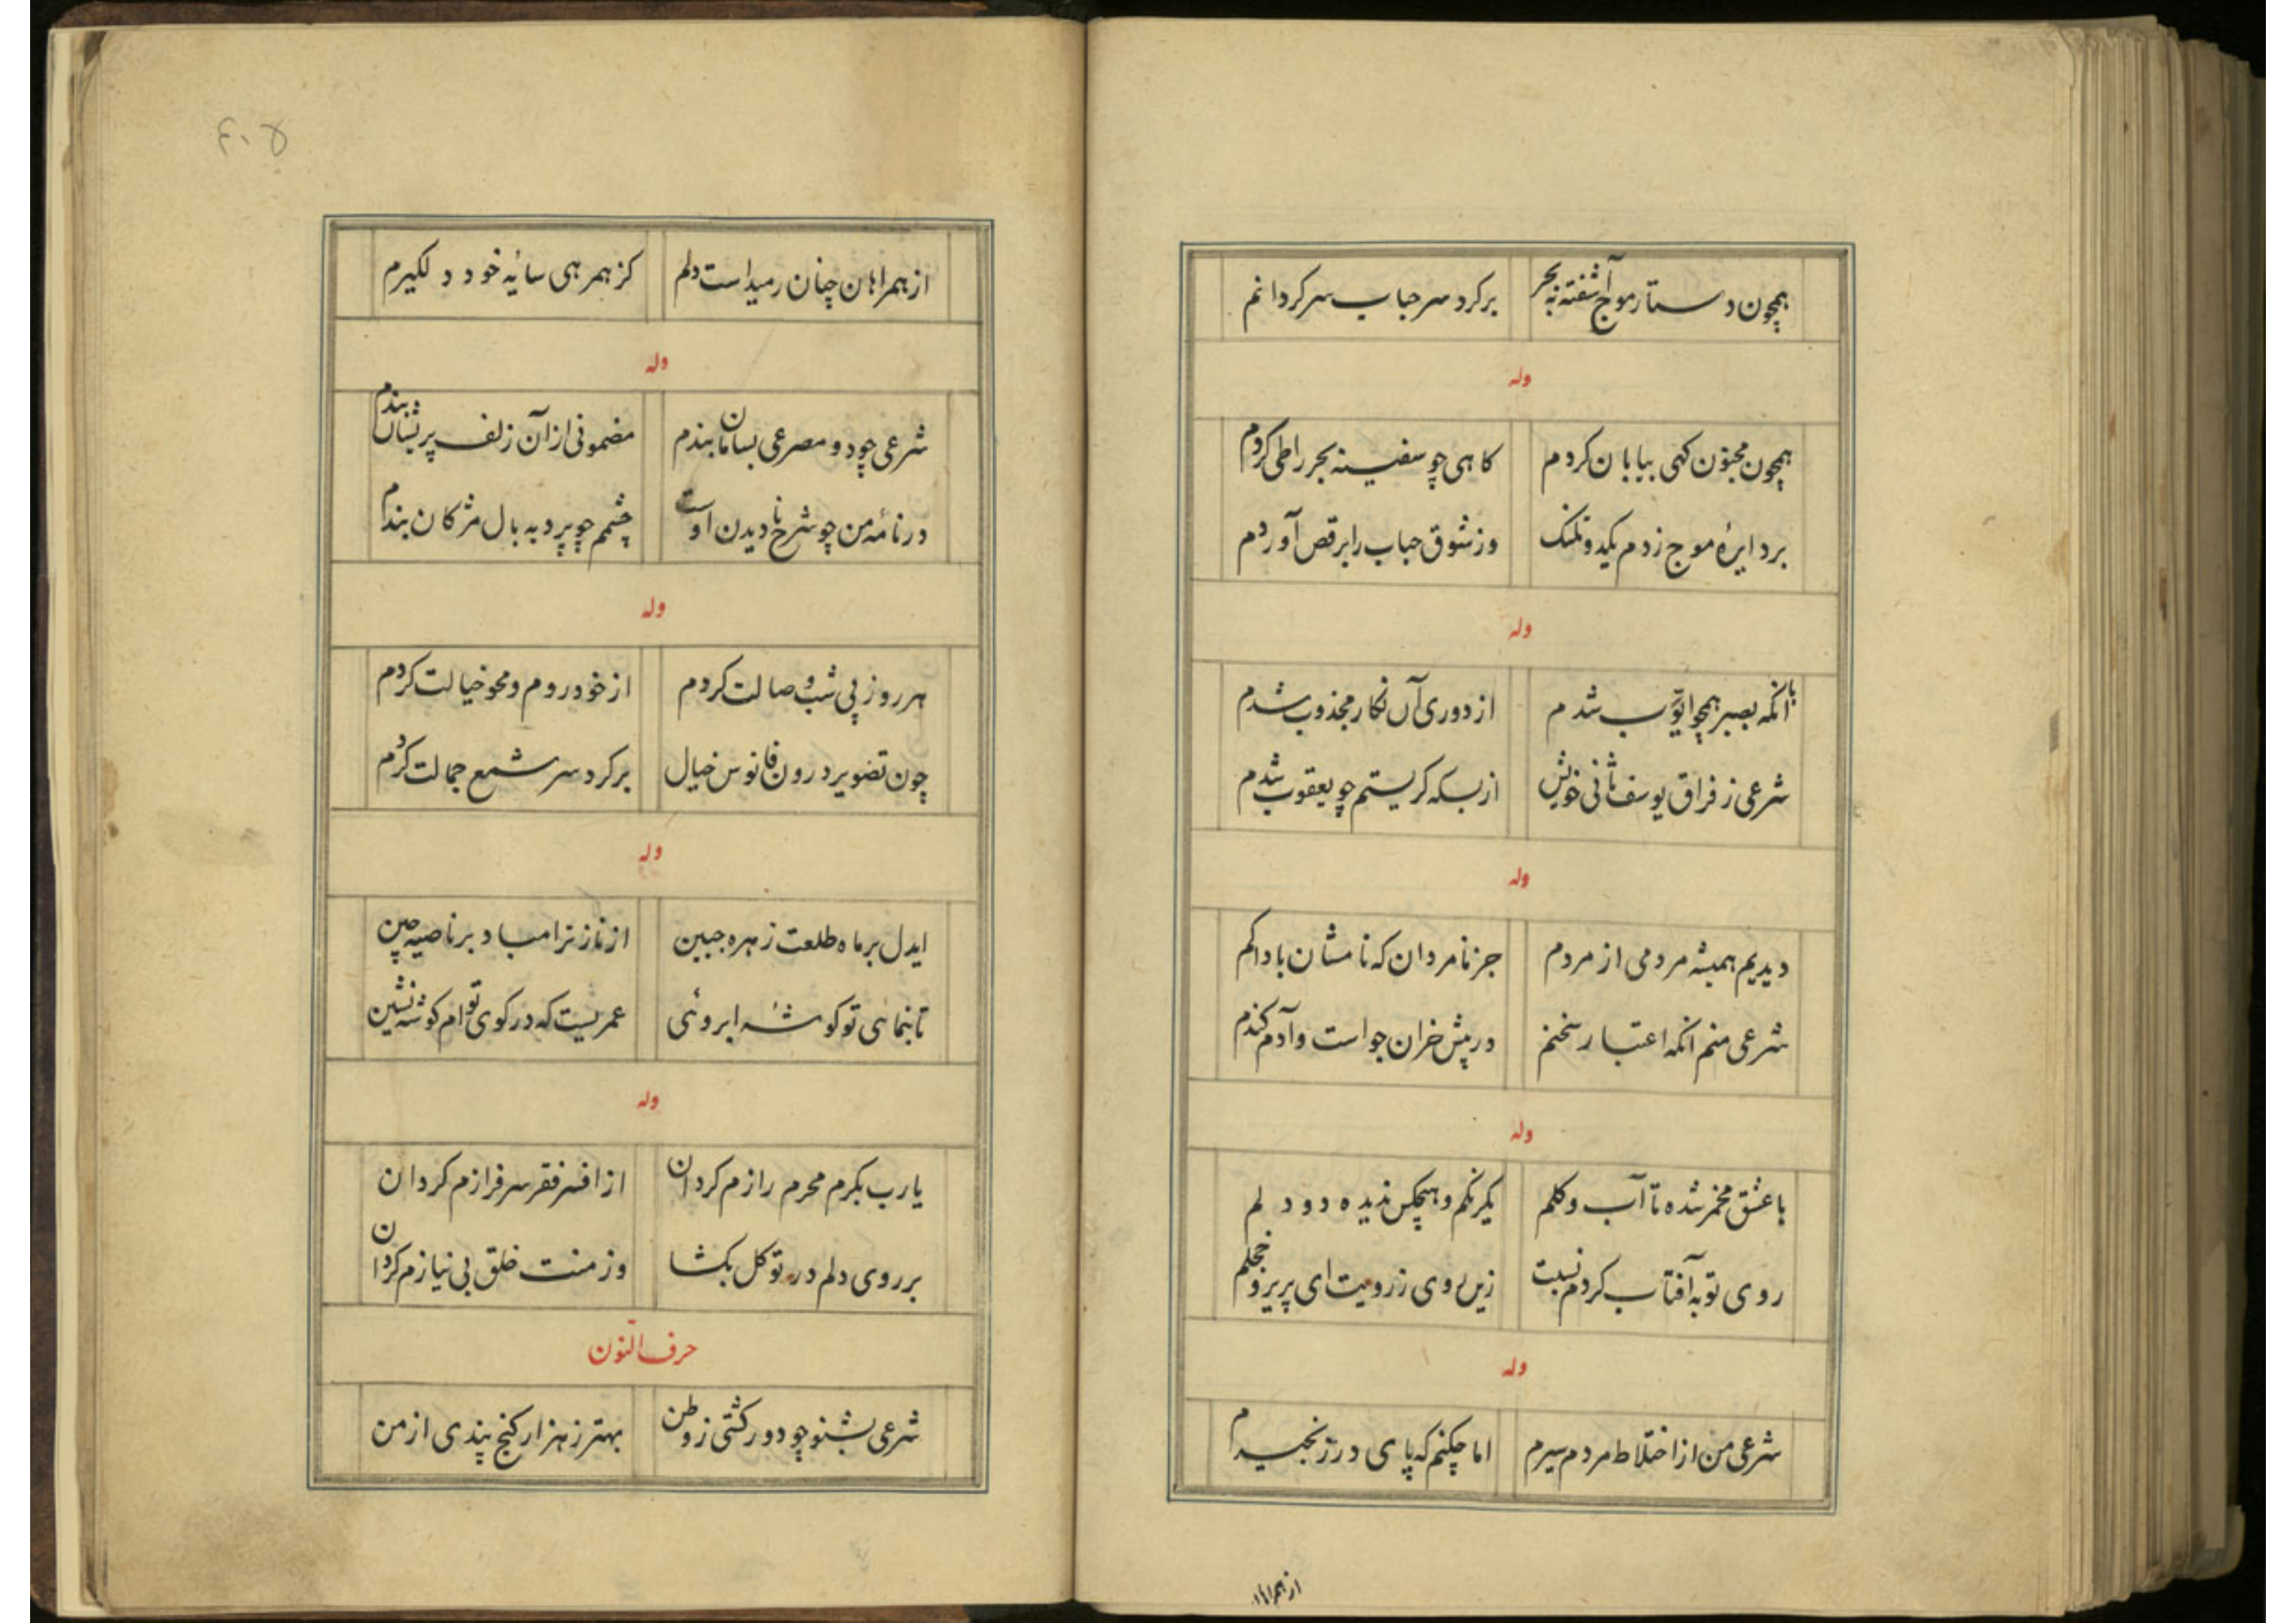 همچون دستار موج آشفته به بحر
بر کرد سر حباب سر کردانم
وله
همچون مجنون کهی بیابان کردم
کاهی چو سفینه بحر را طی کردم
بر دایرهٔ موج زدم یکدو تلنک
وز شوق حباب را برقص آوردم
وله
با آنکه بصبر همچو ایوّب شدم
از دوری آن نکار مجذوب شدم
شرعی ز فراق یوسف ثانی خویش
از بسکه کریستم چو یعقوب شدم
وله
دیدیم همیشه مردمی از مردم
جز نامردان که نامشان بادا کم
شرعی منم انکه اعتبار سخنم
در پیش خران جو است و آدم کندم
وله
با عشق مخمر شده تا آب و کلم
یکرنکم و هیچکس ندیده دو دلم
روی تو به آفتاب کردم نسبت
زین روی ز رویت ای پریرو خجلم
وله
شرعی من از اختلاط مردم سیرم
اما چکنم که پای در زنجیرم
از همراهان
۴۰۵
از همراهان چنان رمیداست دلم
کز همرهی سائه خود دلکیرم
وله
شرعی چو دو مصرعی بسامان بندم
مضمونی از آن زلف پریشان بندم
در نامهٔ من چو شرح نادیدن اوست
چشمم چو پرد به بال مژکان بندم
وله
هر روز پی شب وصالت کردم
از خود روم و محو خیالت کردم
چون تصویر درون فانوس خیال
بر کرد سر شمع جمالت کردم
وله
ایدل بر ماه طلعت زهره جبین
از ناز ترا مباد بر ناصیه چین
تا بنمائی تو کوشهٔ ابروئی
عمریست که در کوی توام کوشه نشین
وله
یارب بکرم محرم رازم کردان
از افسر فقر سرفرازم کردان
بر روی دلم در توکل بکشا
وز منت خلق بی نیازم کردان
حرف النّون
شرعی بشنو چو دور کشتی ز وطن
بهتر ز هزار کنج پندی از من